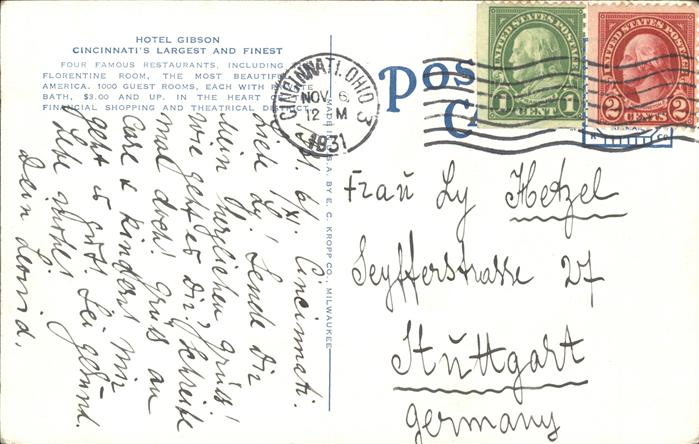 HOTEL GIBSON
CINCINNATI'S LARGEST AND FINEST
FOUR FAMOUS RESTAURANTS, INCLUDING
FLORENTINE ROOM, THE MOST BEAUTIFUL
AMERICA. 1000 GUEST ROOMS, EACH WITH PRIVATE
BATH, $3.00 AND UP. IN THE HEART OF
FINANCIAL SHOPPING AND THEATRICAL DISTRICT
CINCINNATI, OHIO 3
NOV 6
12 M
1931
POS
CA
UNITED STATES POSTAGE
1 CENT 1
UNITED STATES POSTAGE
2 CENTS 2
MADE IN U.S.A. BY E. C. KROPP CO., MILWAUKEE
6/XI. Cincinnati.
Ly! Sende Dir
mein herzlichen Gruß!
wie geht es Dir? Schreibe
mal doch! Gruß an
Care + Kinder! Mir
geht es gut! Sei geküsst.
Dein Leonid.
Frau Ly Hetzel
Seyfferstrasse 27
Stuttgart
Germany